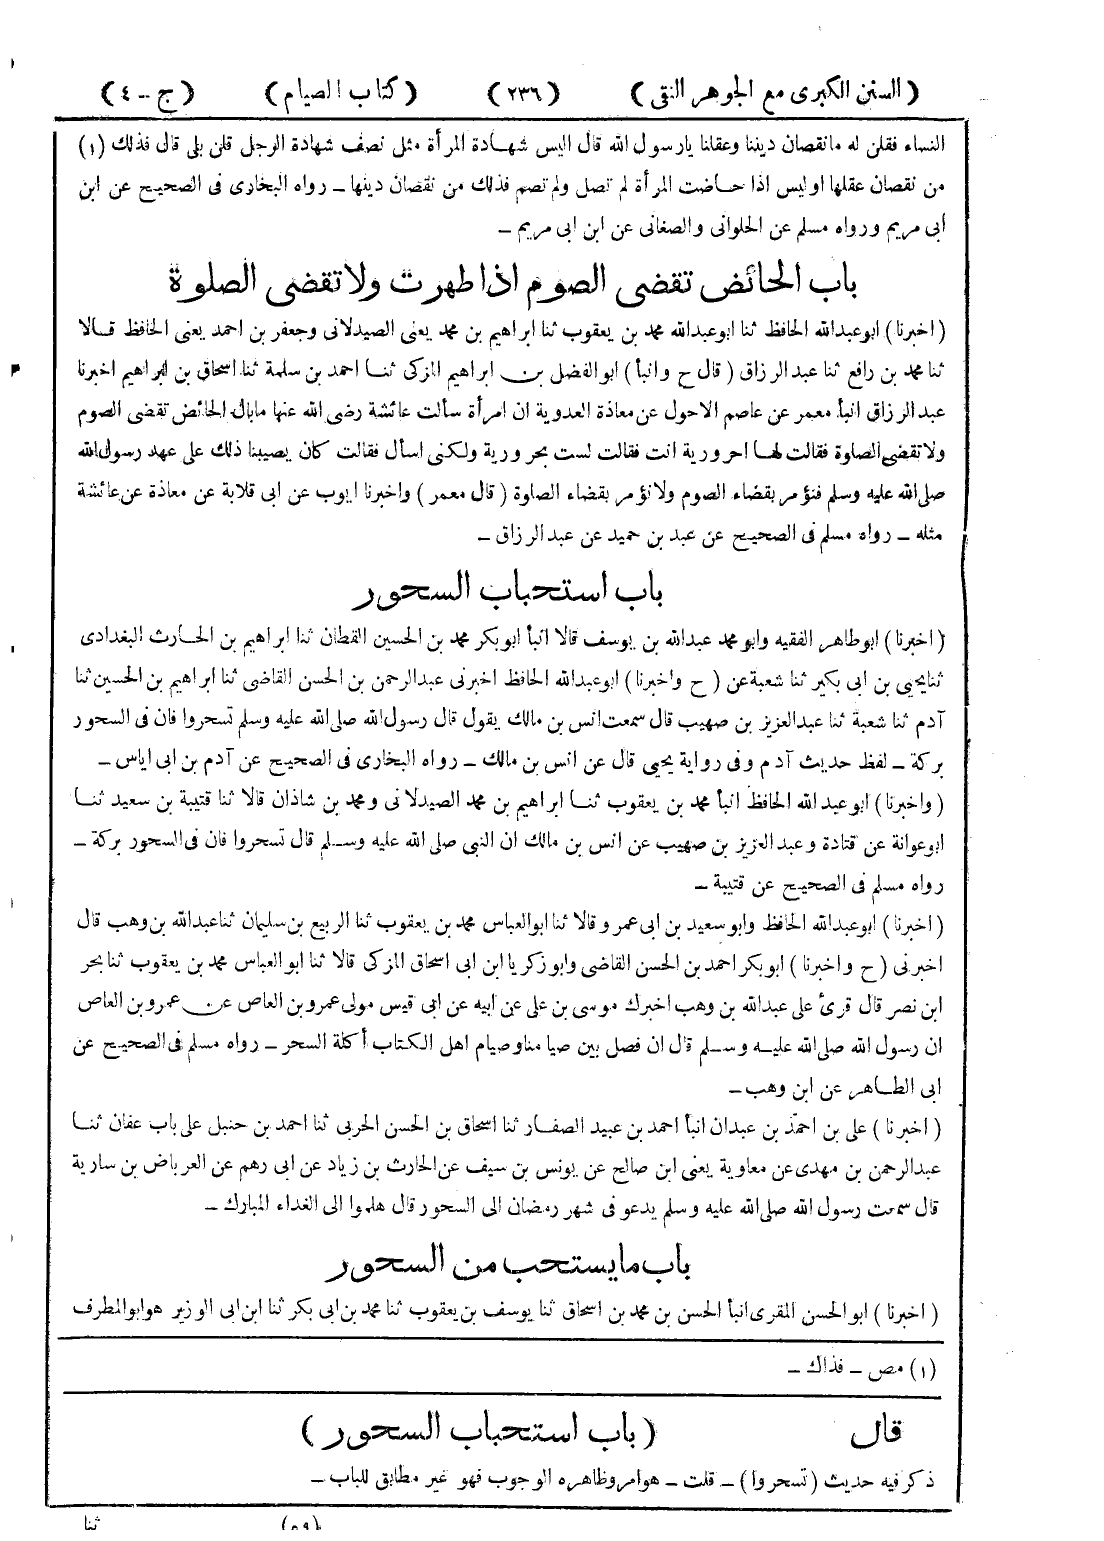 (السنن الكبرى مع الجوهر النقى) (٢٣٦) (كتاب الصيام) (ج - ٤)
النساء فقلن له مانقصان ديننا وعقلنا يارسول الله قال اليس شهادة المرأة مثل نصف شهادة الرجل قلن بلى قال فذلك (١)
من نقصان عقلها اوليس اذا حاضت المرأة لم تصل ولم تصم فذلك من نقصان دينها - رواه البخارى فى الصحيح عن ابن
أبى مريم ورواه مسلم عن الحلوانى والصغانى عن ابن ابى مريم -
باب الحائض تقضى الصوم اذا طهرت ولا تقضى الصلوة
(اخبرنا) ابوعبدالله الحافظ ثنا ابوعبدالله محمد بن يعقوب ثنا ابراهيم بن محمد يعنى الصيدلانى وجعفر بن احمد يعنى الحافظ قالا
ثنا محمد بن رافع ثنا عبد الرزاق (قال ح وانبأ) ابوالفضل بن ابراهيم المزكى ثنا احمد بن سلمة ثنا اسحاق بن ابراهيم اخبرنا
عبد الرزاق انبأ معمر عن عاصم الاحول عن معاذة العدوية ان امرأة سألت عائشة رضى الله عنها مابال الحائض تقضى الصوم
ولا تقضى الصلوة فقالت لها احرورية انت فقالت لست بحرورية ولكنى اسأل فقالت كان يصيبنا ذلك على عهد رسول الله
صلى الله عليه وسلم فنؤمر بقضاء الصوم ولا نؤمر بقضاء الصلوة (قال معمر) واخبرنا ايوب عن ابى قلابة عن معاذة عن عائشة
مثله - رواه مسلم فى الصحيح عن عبد بن حميد عن عبد الرزاق -
باب استحباب السحور
(اخبرنا) ابوطاهر الفقيه وابو محمد عبدالله بن يوسف قالا انبأ ابوبكر محمد بن الحسين القطان ثنا ابراهيم بن الحارث البغدادى
ثنا يحيى بن ابى بكير ثنا شعبة عن (ح واخبرنا) ابوعبدالله الحافظ اخبرنى عبدالرحمن بن الحسن القاضى ثنا ابراهيم بن الحسين ثنا
آدم ثنا شعبة ثنا عبدالعزيز بن صهيب قال سمعت انس بن مالك يقول قال رسول الله صلى الله عليه وسلم تسحروا فان فى السحور
بركة - لفظ حديث آدم وفى رواية يحيى قال عن انس بن مالك - رواه البخارى فى الصحيح عن آدم بن ابى اياس -
(واخبرنا) ابوعبدالله الحافظ انبأ محمد بن يعقوب ثنا ابراهيم بن محمد الصيدلانى ومحمد بن شاذان قالا ثنا قتيبة بن سعيد ثنا
ابوعوانة عن قتادة وعبد العزيز بن صهيب عن انس بن مالك ان النبى صلى الله عليه وسلم قال تسحروا فان فى السحور بركة -
رواه مسلم فى الصحيح عن قتيبة -
(اخبرنا) ابوعبدالله الحافظ وابو سعيد بن ابى عمرو قالا ثنا ابوالعباس محمد بن يعقوب ثنا الربيع بن سليمان ثنا عبدالله بن وهب قال
اخبرنى (ح واخبرنا) ابوبكر احمد بن الحسن القاضى وابو زكريا ابن ابى اسحاق المزكى قالا ثنا ابو العباس محمد بن يعقوب ثنا بحر
ابن نصر قال قرئ على عبدالله بن وهب اخبرك موسى بن على عن ابيه عن ابى قيس مولى عمرو بن العاص عن عمرو بن العاص
ان رسول الله صلى الله عليه وسلم قال ان فصل بين صيامنا وصيام اهل الكتاب أكلة السحر - رواه مسلم فى الصحيح عن
ابى الطاهر عن ابن وهب -
(اخبرنا) على بن احمد بن عبدان انبأ احمد بن عبيد الصفار ثنا اسحاق بن الحسن الحربى ثنا احمد بن حنبل على باب عفان ثنا
عبدالرحمن بن مهدى عن معاوية يعنى ابن صالح عن يونس بن سيف عن الحارث بن زياد عن ابى رهم عن العرباض بن سارية
قال سمعت رسول الله صلى الله عليه وسلم يدعو فى شهر رمضان الى السحور قال هلموا الى الغداء المبارك -
باب ما يستحب من السحور
(اخبرنا) ابو الحسن المقرى انبأ الحسن بن محمد بن اسحاق ثنا يوسف بن يعقوب ثنا محمد بن ابى بكر ثنا ابن ابى الوزير هو ابو المطرف
(١) مص - فذاك -
قال (باب استحباب السحور)
ذكر فيه حديث (تسحروا) - قلت - هو امر وظاهره الوجوب فهو غير مطابق للباب -
(٥٩) ثنا